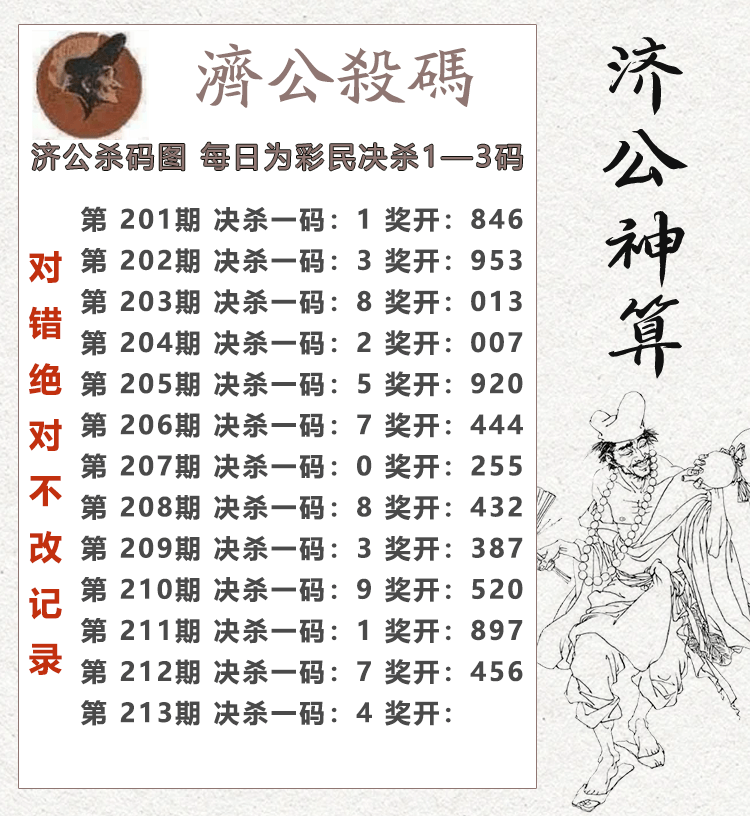 濟公殺碼
济公杀码图 每日为彩民决杀1—3码
第 201期 决杀一码：1 奖开：846
第 202期 决杀一码：3 奖开：953
第 203期 决杀一码：8 奖开：013
第 204期 决杀一码：2 奖开：007
第 205期 决杀一码：5 奖开：920
第 206期 决杀一码：7 奖开：444
第 207期 决杀一码：0 奖开：255
第 208期 决杀一码：8 奖开：432
第 209期 决杀一码：3 奖开：387
第 210期 决杀一码：9 奖开：520
第 211期 决杀一码：1 奖开：897
第 212期 决杀一码：7 奖开：456
第 213期 决杀一码：4 奖开：
对错绝对不改记录
济公神算